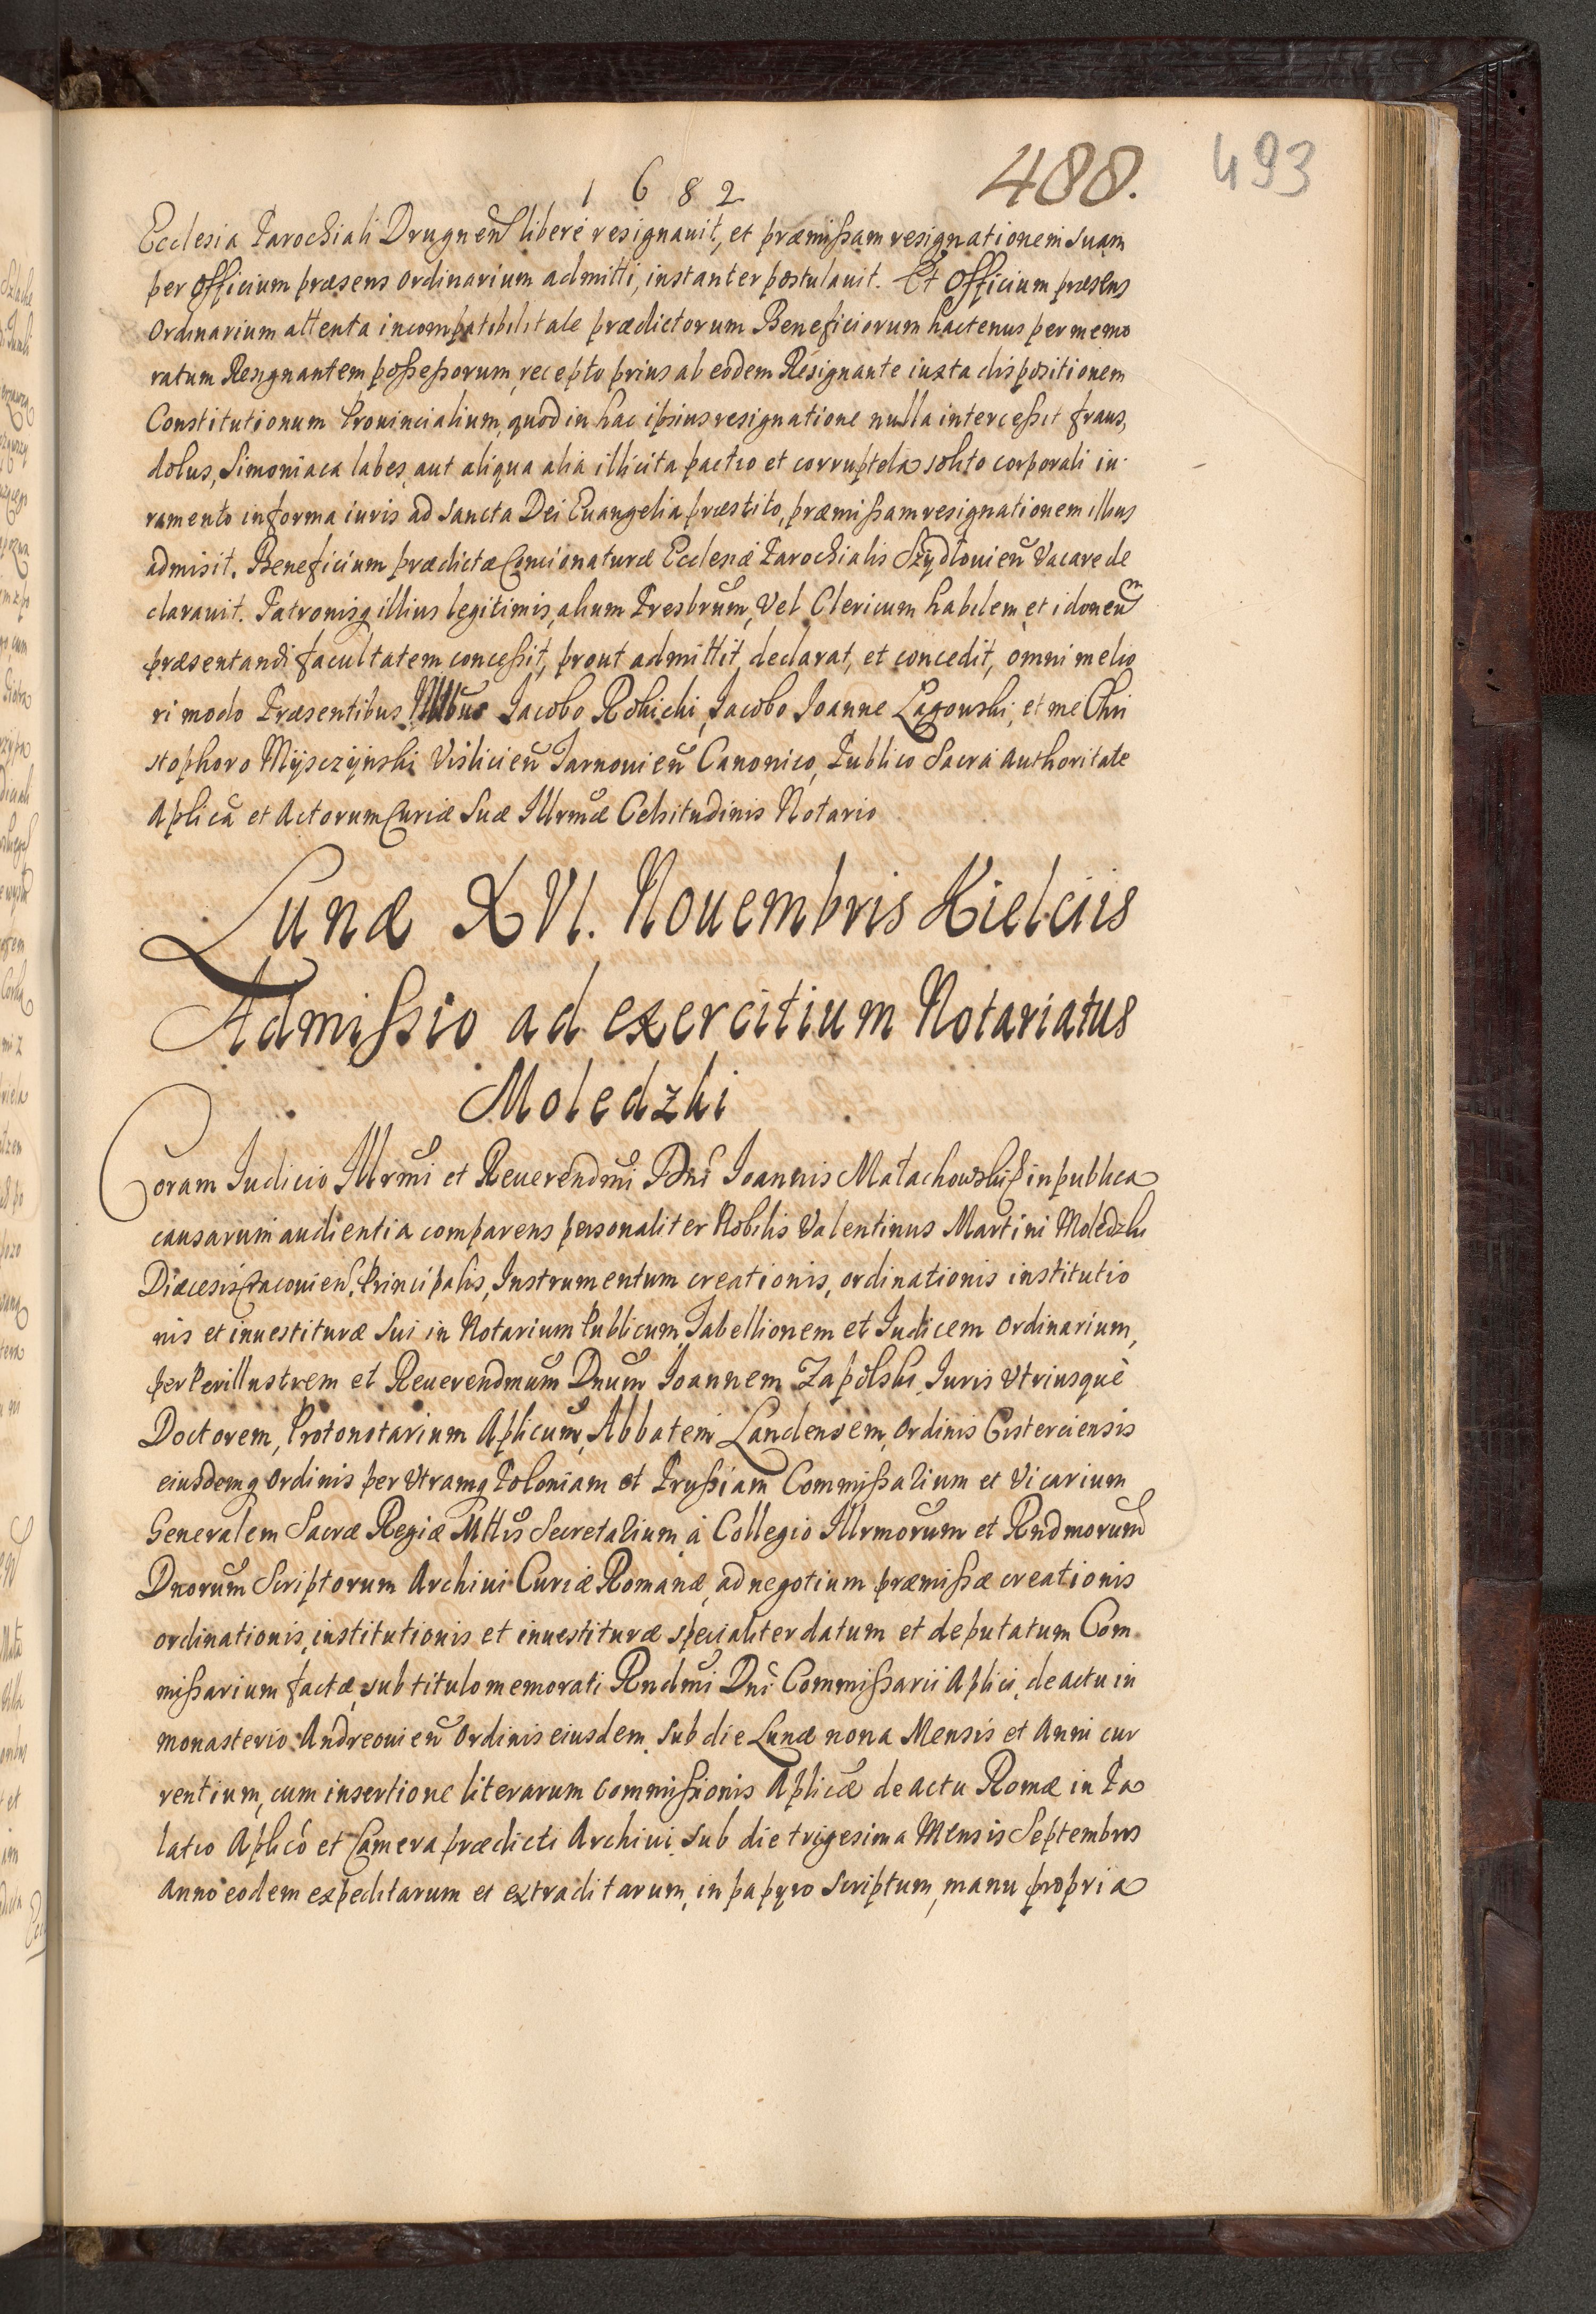 1682
488.
493
Ecclesia Parochiali Drugnen̄ libere resignauit, et præmissam resignationem suam
per officium præsens ordinarium admitti, instanter postulauit. Et Officium præsens
ordinarium attenta incompatibilitate prædictorum Beneficiorum hactenus per memo
ratum Resignantem possessorum, recepto prius ab eodem Resignante iuxta dispositionem
Constitutionum Prouincialium, quod in hac ipsius resignatione nulla intercessit fraus,
dolus, Simoniaca labes, aut aliqua alia illicita pactio et corruptela solito corporali iu
ramento in forma iuris ad Sancta Dei Euangelia præstito, præmissam resignationem illius
admisit. Beneficium prædictæ Concionaturæ Ecclesiæ Parochialis Szydlouien̄ Vacare de
clarauit. Patronisq illius legitimis, alium Presbrum̄, Vel Clericum habilem et idoneum
præsentandi facultatem concessit, prout admittit, declarat, et concedit, omni melio
ri modo Præsentibus Jacobo Robicki, Jacobo Joanne Lagowski, et me Chri
stophoro Myjsczynski Visliciен̄ Tarnouien̄ Canonico, Publico Sacra authoritate
Aplicā et Actorum Curiæ Suæ Illrmæ Celsitudinis Notario
Lunæ XVI. Nouembris Kielciis
Admissio ad exercitium Notariatus
Moledzki
Coram Iudicio Illrmi et Reuerendmi Dni Ioannis Małachowski in publica
causarum audientia comparens personaliter Nobilis Valentinus Martini Moledzki
Diæcesis Cracouien̄. Principalis, Instrumentum creationis, ordinationis institutio
nis et inuestituræ sui in Notarium Publicum Tabellionem et Iudicem ordinarium,
per Perillustrem et Reuerendmum Dnum Ioannem Zapolski, Iuris Vtriusque
Doctorem, Protonotarium Aplicum, Abbatem Landensem, ordinis Cisterciensis
eiusdemq ordinis per Vtramq Poloniam et Prussiam Commissarium et Vicarium
Generalem Sacræ Regiæ Mttis Secretarium, à Collegio Illrmorum et Rndmorum
Dnorum Scriptorum Archiui Curiæ Romanæ, ad negotium præmissæ creationis
ordinationis, institutionis et inuestituræ specialiter datum et deputatum Com
missarium factæ, sub titulo memorati Rndmi Dni Commissarii Aplici, de actu in
monasterio Andreouien̄ ordinis eiusdem sub die Lunæ nona Mensis et Anni cur
rentium, cum insertione literarum commissionis Aplicæ de actu Romæ in Pa
latio Aplico et Camera prædicti Archiui, sub die trigesima Mensis Septembris
Anno eodem expeditarum et extraditarum, in papyro scriptum, manu propria